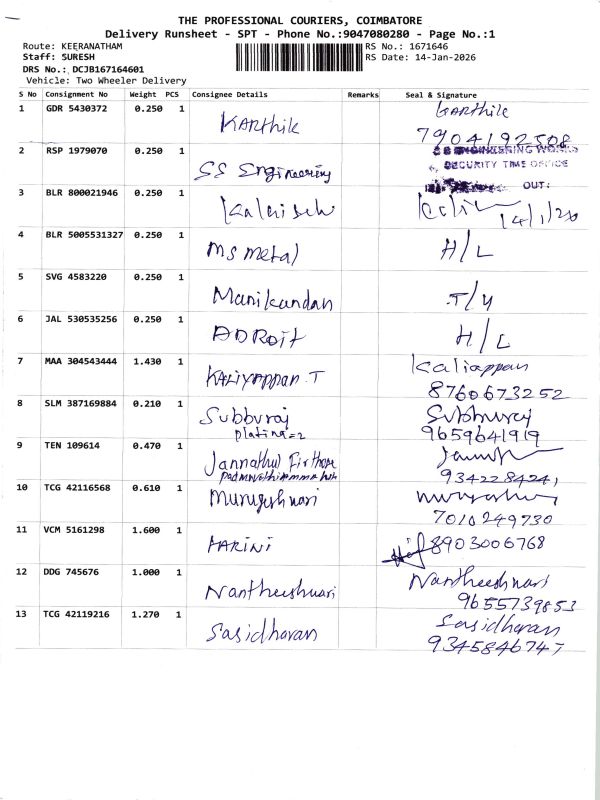 THE PROFESSIONAL COURIERS, COIMBATORE
Delivery Runsheet - SPT - Phone No.:9047080280 - Page No.:1
Route: KEERANATHAM RS No.: 1671646
Staff: SURESH RS Date: 14-Jan-2026
DRS No.: DCJB167164601
Vehicle: Two Wheeler Delivery
S No Consignment No Weight PCS Consignee Details Remarks Seal & Signature
1 GDR 5430372 0.250 1 KARthik KARthik
7904192508
2 RSP 1979070 0.250 1 SS Engineering ENGINEERING WORKS
SECURITY TIME OFFICE
OUT:
3 BLR 800021946 0.250 1 14/1/26
4 BLR 5005531327 0.250 1 ms metal H/L
5 SVG 4583220 0.250 1 Manikandan T/Y
6 JAL 530535256 0.250 1 ADROIT H/L
7 MAA 304543444 1.430 1 KALIYAPPAN T Kaliappan
8760673252
8 SLM 387169884 0.210 1 Subburaj Subburaj
platina=2 9659641919
9 TEN 109614 0.470 1 Jannathul Firthose
934228424,
10 TCG 42116568 0.610 1 Murugeshwari
7010249730
11 VCM 5161298 1.600 1 HARINI 8903006768
12 DDG 745676 1.000 1 Nantheeshwari Nantheeshwari
9655739853
13 TCG 42119216 1.270 1 Sasidharan Sasidharan
9345846747